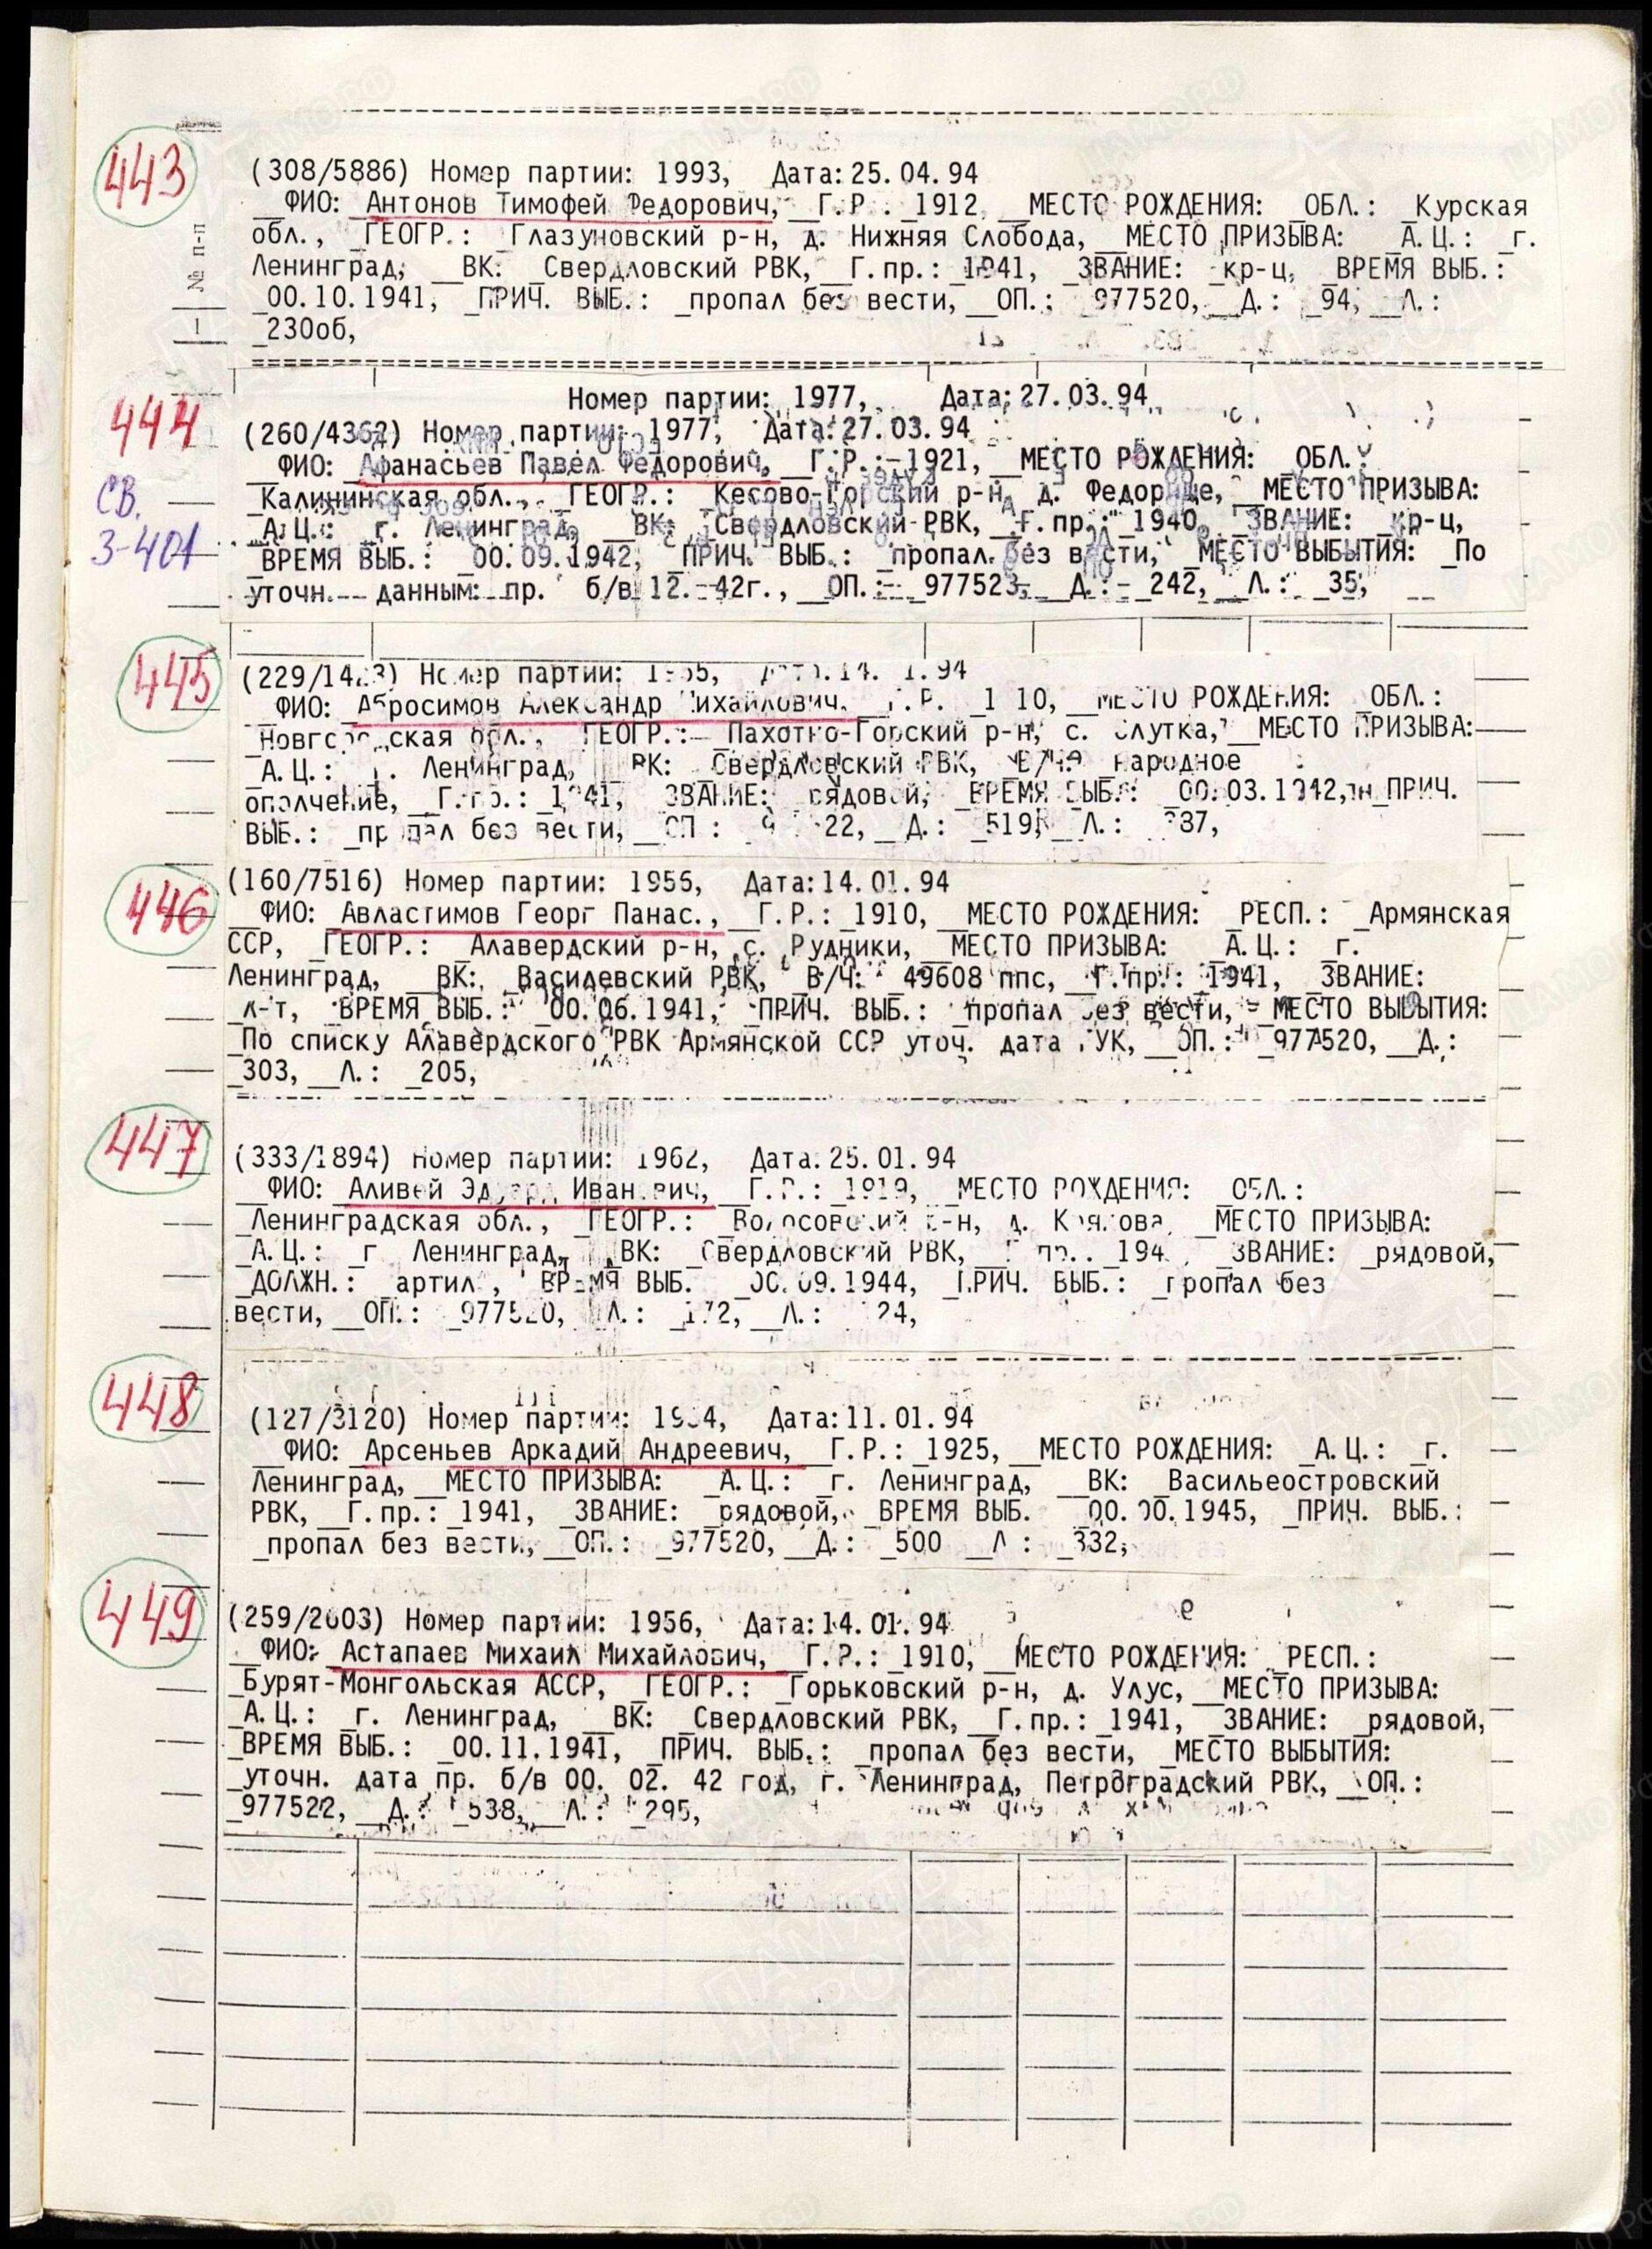 443
(308/5886) Номер партии: 1993, Дата: 25.04.94
__ФИО: _Антонов Тимофей Федорович, __Г.Р.: _1912, __МЕСТО РОЖДЕНИЯ: _ОБЛ.: _Курская
обл., _ГЕОГР.: _Глазуновский р-н, д. Нижняя Слобода, __МЕСТО ПРИЗЫВА: _А.Ц.: _г.
Ленинград, __ВК: _Свердловский РВК, _Г.пр.: _1941, _ЗВАНИЕ: _кр-ц, _ВРЕМЯ ВЫБ.:
_00.10.1941, _ПРИЧ. ВЫБ.: _пропал без вести, __ОП.: _977520, __Д.: _94, __Л.:
_230об,
№ п-п
1
444
Номер партии: 1977, Дата: 27.03.94
(260/4362) Номер партии: 1977, Дата: 27.03.94
__ФИО: _Афанасьев Павел Федорович, __Г.Р.: _1921, __МЕСТО РОЖДЕНИЯ: _ОБЛ.:
_Калининская обл., _ГЕОГР.: _Кесово-Горский р-н, д. Федорище, __МЕСТО ПРИЗЫВА:
_А.Ц.: _г. Ленинград, __ВК: _Свердловский РВК, __Г.пр.: _1940, _ЗВАНИЕ: _кр-ц,
_ВРЕМЯ ВЫБ.: _00.09.1942, _ПРИЧ. ВЫБ.: _пропал без вести, _МЕСТО ВЫБЫТИЯ: _По
уточн. данным: пр. б/в 12. 42г., __ОП.: _977523, __Д.: _242, __Л.: _35,
СВ.
3-401
445
Номер партии:
__ФИО: _Абросимов Александр Михайлович, __МЕСТО РОЖДЕНИЯ: _ОБЛ.:
_Новгородская обл., _ГЕОГР.: _Пахотно-Горский р-н, с. Слутка, __МЕСТО ПРИЗЫВА:
_А.Ц.: _г. Ленинград, __ВК: _Свердловский РВК, _В/Ч: народное
ополчение, __Г.пр.: _1941, _ЗВАНИЕ: _рядовой, _ВРЕМЯ ВЫБ.: _00.03.1942, _ПРИЧ.
ВЫБ.: _пропал без вести, __ОП.: __Д.: _519, __Л.:
446
(160/7516) Номер партии: 1956, Дата: 14.01.94
__ФИО: _Авластимов Георг Панас., __Г.Р.: _1910, __МЕСТО РОЖДЕНИЯ: _РЕСП.: _Армянская
ССР, _ГЕОГР.: _Алавердский р-н, с. Рудники, __МЕСТО ПРИЗЫВА: _А.Ц.: _г.
Ленинград, __ВК: _Василевский РВК, _В/Ч: _49608 ппс, __Г.пр.: _1941, _ЗВАНИЕ:
_л-т, _ВРЕМЯ ВЫБ.: _00.06.1941, _ПРИЧ. ВЫБ.: _пропал без вести, _МЕСТО ВЫБЫТИЯ:
_По списку Алавердского РВК Армянской ССР уточ. дата ГУК, __ОП.: _977520, __Д.:
_303, __Л.: _205,
447
(333/1894) Номер партии: 1962, Дата: 25.01.94
__ФИО: _Аливей Эдуард Иванович, __Г.Р.: _1919, __МЕСТО РОЖДЕНИЯ: _ОБЛ.:
_Ленинградская обл., _ГЕОГР.: _Волосовский р-н, д. __МЕСТО ПРИЗЫВА:
_А.Ц.: _г. Ленинград, __ВК: _Свердловский РВК, __Г.пр.: _ЗВАНИЕ: _рядовой,
_ДОЛЖН.: _артил., _ВРЕМЯ ВЫБ.: _00.09.1944, _ПРИЧ. ВЫБ.: _пропал без
вести, __ОП.: _977520, __Д.: _172, __Л.:
448
(127/3120) Номер партии: Дата: 11.01.94
__ФИО: _Арсеньев Аркадий Андреевич, __Г.Р.: _1925, __МЕСТО РОЖДЕНИЯ: _А.Ц.: _г.
Ленинград, __МЕСТО ПРИЗЫВА: _А.Ц.: _г. Ленинград, __ВК: _Васильеостровский
РВК, __Г.пр.: _1941, _ЗВАНИЕ: _рядовой, _ВРЕМЯ ВЫБ.: _00.00.1945, _ПРИЧ. ВЫБ.:
_пропал без вести, __ОП.: _977520, __Д.: _500 __Л.: _332,
449
(259/2003) Номер партии: 1956, Дата: 14.01.94
__ФИО: _Астапаев Михаил Михайлович, __Г.Р.: _1910, __МЕСТО РОЖДЕНИЯ: _РЕСП.:
_Бурят-Монгольская АССР, _ГЕОГР.: _Горьковский р-н, д. Улус, __МЕСТО ПРИЗЫВА:
_А.Ц.: _г. Ленинград, __ВК: _Свердловский РВК, __Г.пр.: _1941, _ЗВАНИЕ: _рядовой,
_ВРЕМЯ ВЫБ.: _00.11.1941, _ПРИЧ. ВЫБ.: _пропал без вести, _МЕСТО ВЫБЫТИЯ:
_уточн. дата пр. б/в 00. 02. 42 год, г. Ленинград, Петроградский РВК, __ОП.:
_977522, __Д.: _538, __Л.: _295,